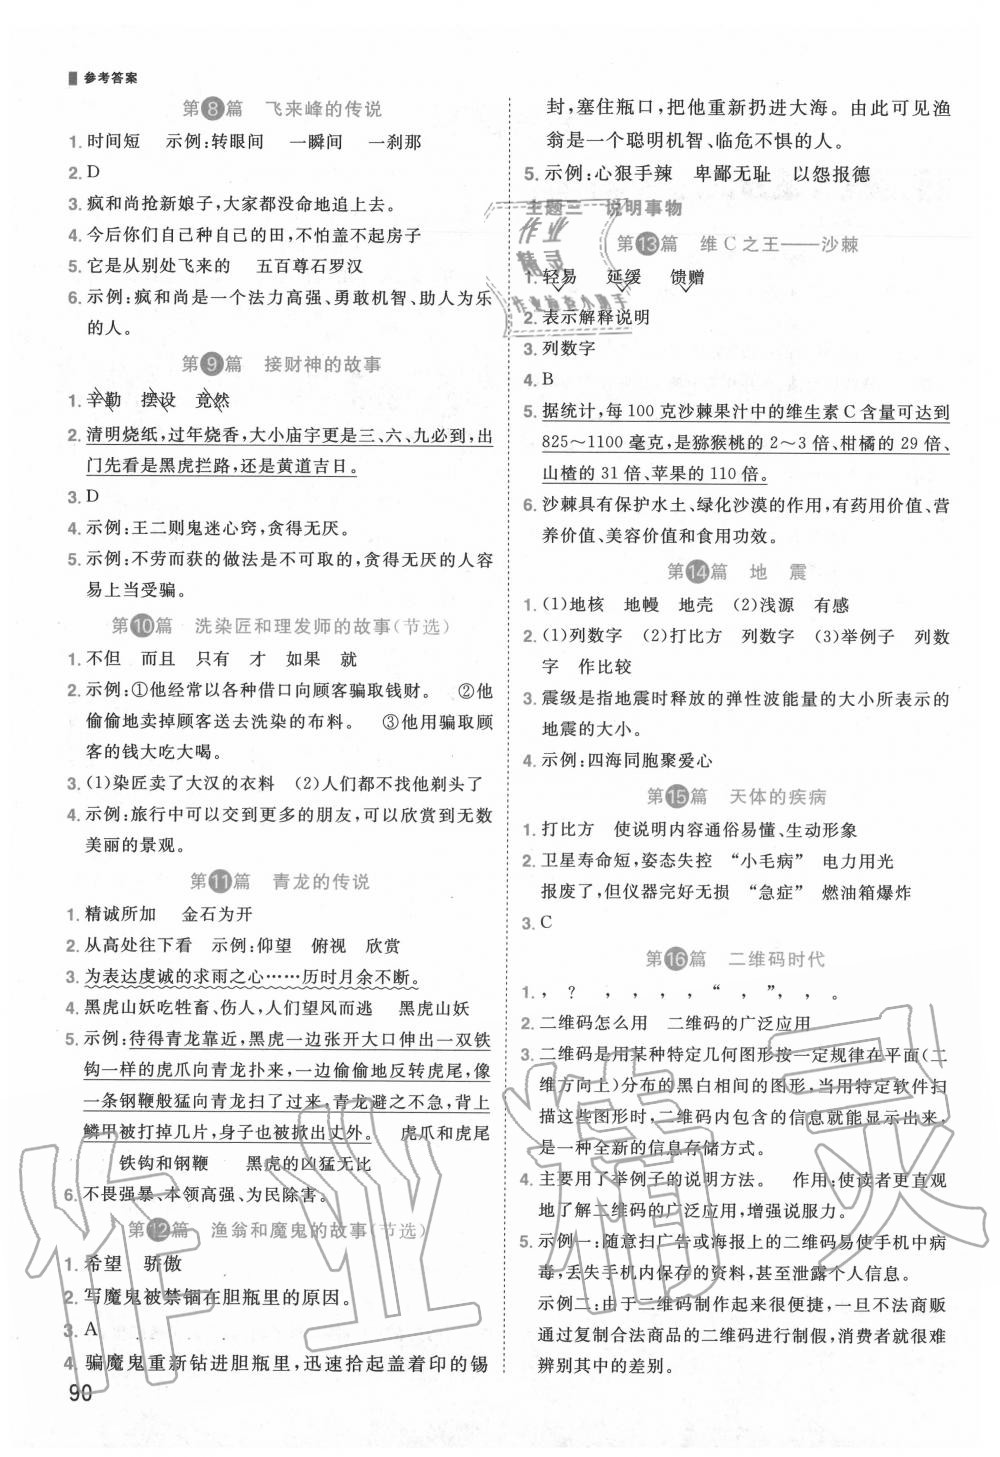 参考答案
第8篇 飞来峰的传说
1. 时间短 示例:转眼间 一瞬间 一刹那
2. D
3. 疯和尚抢新娘子,大家都没命地追上去。
4. 今后你们自己种自己的田,不怕盖不起房子
5. 它是从别处飞来的 五百尊石罗汉
6. 示例:疯和尚是一个法力高强、勇敢机智、助人为乐
的人。
第9篇 接财神的故事
1. 辛勤 摆设 竟然
2. 清明烧纸,过年烧香,大小庙宇更是三、六、九必到,出
门先看是黑虎拦路,还是黄道吉日。
3. D
4. 示例:王二则鬼迷心窍,贪得无厌。
5. 示例:不劳而获的做法是不可取的,贪得无厌的人容
易上当受骗。
第10篇 洗染匠和理发师的故事(节选)
1. 不但 而且 只有 才 如果 就
2. 示例:①他经常以各种借口向顾客骗取钱财。 ②他
偷偷地卖掉顾客送去洗染的布料。 ③他用骗取顾
客的钱大吃大喝。
3. (1)染匠卖了大汉的衣料 (2)人们都不找他剃头了
4. 示例:旅行中可以交到更多的朋友,可以欣赏到无数
美丽的景观。
第11篇 青龙的传说
1. 精诚所加 金石为开
2. 从高处往下看 示例:仰望 俯视 欣赏
3. 为表达虔诚的求雨之心……历时月余不断。
4. 黑虎山妖吃牲畜、伤人,人们望风而逃 黑虎山妖
5. 示例:待得青龙靠近,黑虎一边张开大口伸出一双铁
钩一样的虎爪向青龙扑来,一边偷偷地反转虎尾,像
一条钢鞭般猛向青龙扫了过来,青龙避之不急,背上
鳞甲被打掉几片,身子也被掀出丈外。 虎爪和虎尾
铁钩和钢鞭 黑虎的凶猛无比
6. 不畏强暴、本领高强、为民除害。
第12篇 渔翁和魔鬼的故事(节选)
1. 希望 骄傲
2. 写魔鬼被禁锢在胆瓶里的原因。
3. A
4. 骗魔鬼重新钻进胆瓶里,迅速拾起盖着印的锡
90
封,塞住瓶口,把他重新扔进大海。由此可见渔
翁是一个聪明机智、临危不惧的人。
5. 示例:心狠手辣 卑鄙无耻 以怨报德
主题三 说明事物
第13篇 维C之王——沙棘
1. 轻易 延缓 馈赠
2. 表示解释说明
3. 列数字
4. B
5. 据统计,每100克沙棘果汁中的维生素C含量可达到
825~1100毫克,是猕猴桃的2~3倍、柑橘的29倍、
山楂的31倍、苹果的110倍。
6. 沙棘具有保护水土、绿化沙漠的作用,有药用价值、营
养价值、美容价值和食用功效。
第14篇 地 震
1. (1)地核 地幔 地壳 (2)浅源 有感
2. (1)列数字 (2)打比方 列数字 (3)举例子 列数
字 作比较
3. 震级是指地震时释放的弹性波能量的大小所表示的
地震的大小。
4. 示例:四海同胞聚爱心
第15篇 天体的疾病
1. 打比方 使说明内容通俗易懂、生动形象
2. 卫星寿命短,姿态失控 “小毛病” 电力用光
报废了,但仪器完好无损 “急症” 燃油箱爆炸
3. C
第16篇 二维码时代
1. , ? , , , , “ , ”, , 。
2. 二维码怎么用 二维码的广泛应用
3. 二维码是用某种特定几何图形按一定规律在平面(二
维方向上)分布的黑白相间的图形,当用特定软件扫
描这些图形时,二维码内包含的信息就能显示出来,
是一种全新的信息存储方式。
4. 主要用了举例子的说明方法。 作用:使读者更直观
地了解二维码的广泛应用,增强说服力。
5. 示例一:随意扫广告或海报上的二维码易使手机中病
毒,丢失手机内保存的资料,甚至泄露个人信息。
示例二:由于二维码制作起来很便捷,一旦不法商贩
通过复制合法商品的二维码进行制假,消费者就很难
辨别其中的差别。
作业
精灵
作业精灵